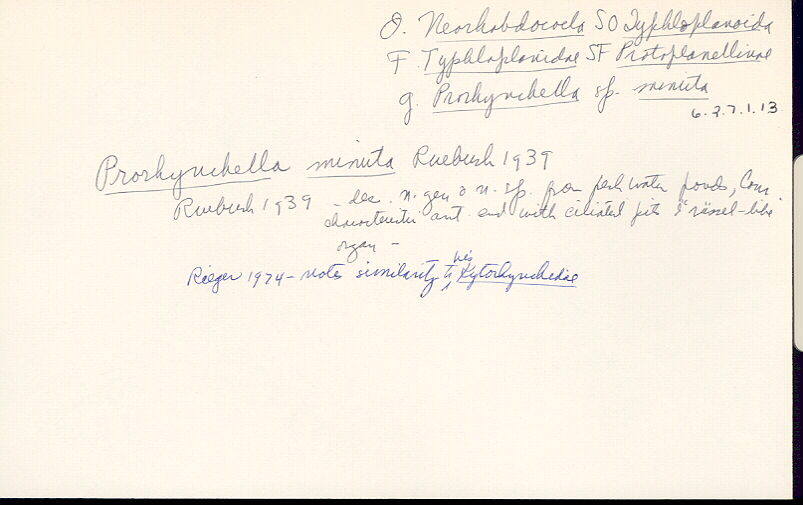 O. Neorhabdocoela SO Typhloplanoida
F. Typhloplanidae SF Protoplanellinae
g. Prorhynchella sp. minuta
6.2.7.1.13
Prorhynchella minuta Ruebush 1939
Ruebush 1939 – des. n. gen & n. sp. from fresh water ponds, Conn.
characteristic ant. end with ciliated pits & rüssel-like
organ –
Rieger 1974 – notes similarity to his Kytorhynchidae